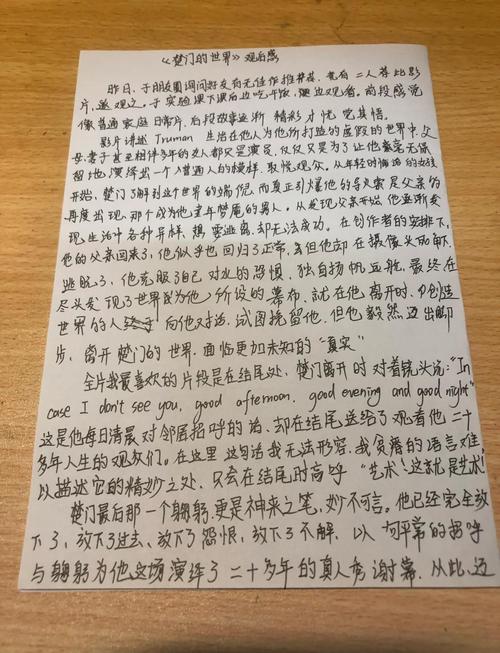 《楚门的世界》观后感
昨日，于朋友圈询问好友有无佳作推荐，竟有二人荐此影
片，遂观之。于实验课下课后边吃午饭，边观看。前段感觉
像普通家庭日常片，后段故事逐渐精彩才恍觉其悟。
影片讲述 Truman 生活在他人为他所打造的虚假的世界中，父
母妻子甚至相伴多年的友人都只是演员，仅仅只是为了让他毫无保
留地演绎出一个普通人的模样，取悦观众。从年轻时偶遇的女孩
开始，楚门了解到这个世界的端倪，而真正引爆他的导火索是父亲的
再度出现，那个成为他童年梦魇的男人。从发现父亲开始，他逐渐发
现生活中各种异样，想要逃离，却无法成功。在创作者的安排下，
他的父亲回来了，他似乎也回归了正常，但他却在摄像头
逃脱了，他克服了自己对水的恐惧，独自扬帆远航，最终在
尽头发现了世界只为他所设的幕布，就在他离开时，创造
世界的人 向他对话，试图挽留他，但也毅然迈出脚
步，离开楚门的世界，面临更加未知的“真实”
全片我最喜欢的片段是在结尾处，楚门离开时对着镜头说：“In
case I don't see you, good afternoon, good evening and good night"
这是他每日清晨对邻居招呼的话，却在结尾送给了观看他二十
多年人生的观众们。在这里，这句话我无法形容，我贫瘠的语言难
以描述它的精妙之处，只会在结尾时高呼“艺术！这就是艺术！
楚门最后那一个鞠躬，更是神来之笔，妙不可言。他已经完全放
下了，放下了过去、放下了怨恨，放下了不解，以 平常的招呼
与鞠躬为他这场演绎了二十多年的真人秀谢幕，从此，迈